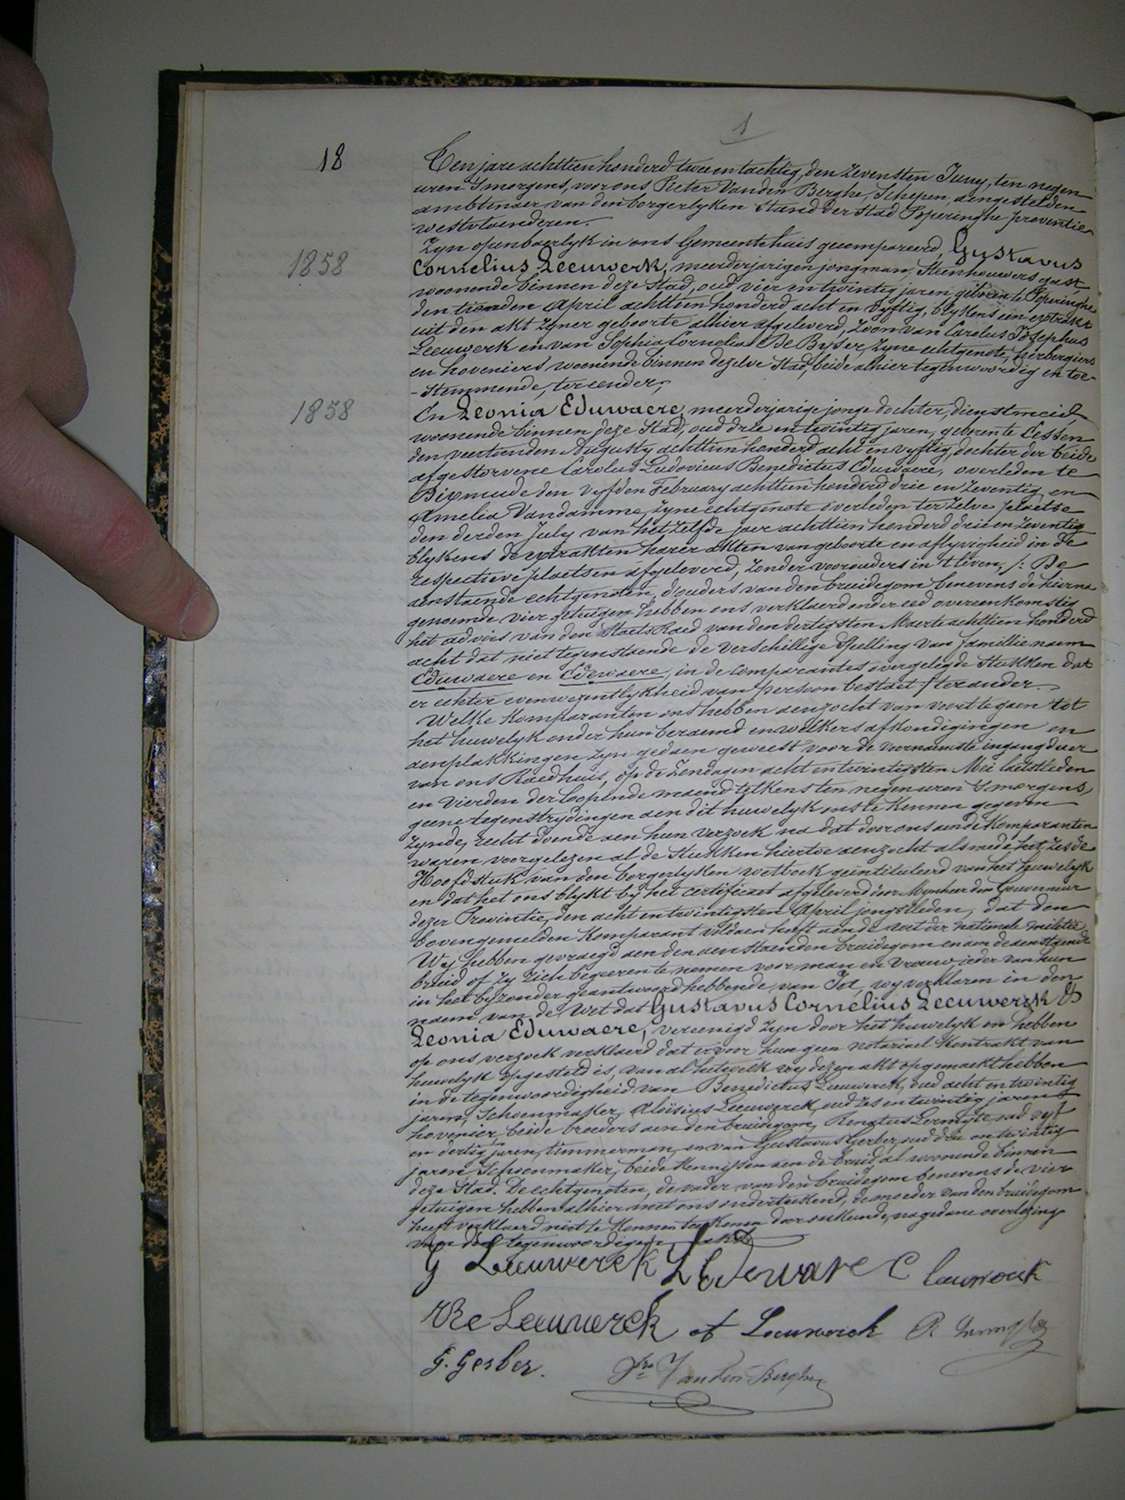 1
18
Ten jare achttien honderd twee en tachtig, den zevensten Juny, ten negen
uren smorgens, voor ons Pieter Vanden Berghe, Schepen, aengestelden
ambtenaer van den borgerlyken Stand der Stad Poperinghe provintie
westvlaenderen.
Zyn openbaerlyk in ons Gemeentehuis gecompareerd, Gustavus
1858
Cornelius Leeuwerk, meerderjarigen jongman, Steenhouwers gast
woonende binnen deze Stad, oud vier en twintig jaren geboren te Poperinghe
den tienden April achttien honderd acht en vyftig, blykens een extrakt
uit den akt zyner geboorte alhier afgeleverd, zoon van Carolus Josephus
Leeuwerk en van Sophia Cornelia De Byser, zyne echtgenote, herbergiers
en hoveniers woonende binnen dezelve Stad, beide alhier tegenwoordig en toe-
-stemmende, ter eender,
1858
En Leonia Eduwaere, meerderjarige jonge dochter, dienstmeid
woonende binnen deze Stad, oud drie en twintig jaren, geboren te Lessen
den veertienden Augusty achttien honderd acht en vyftig, dochter der beide
afgestorvene Carolus Ludovicus Benedictus Eduwaere, overleden te
Dixmude den vyfden February achttien honderd drie en zeventig, en
Amelia Vandamme, zyne echtgenote overleden ter zelve plaetse
den derden July van het zelfde jaer achttien honderd drie en zeventig
blykens de extrakten harer akten van geboorte en aflyvigheid in de
respectieve plaetsen afgeleverd, zonder voorouders in 't leven, /: De
aenstaende echtgenoten, d'ouders van den bruidegom benevens de hierna
genoemde vier getuigen hebben ons verklaerd onder eed overeenkomstig
het advis van den Staets Raed van den dertigsten Maerte achttien honderd
acht dat niet tegenstaende de verschillige Spelling van famillie naem
Eduwaere en Edewaere, in de comparantes overgelegde Stukken dat
er echter evenwezentlykheid van persoon bestaet / ter ander.
Welke komparanten ons hebben aenzocht van voort te gaen tot
het huwelyk onder hun beraemd en welkers afkondigingen en
aenplakkingen zyn gedaen geweest voor de voornaemste ingangdeur
van ons Raedhuis, op de Zondagen acht en twintigsten Mei laetstleden
en vierden der loopende maend telkens ten negen uren smorgens,
geene tegenstrydingen aen dit huwelyk ons te kennen gegeven
zynde, recht doende aen hun verzoek na dat door ons aen de komparanten
waren voorgelezen al de Stukken hiertoe aenzocht alsmede het zesde
Hoofdstuk van den borgerlyken wetboek geïntituleerd van het huwelyk
en dat het ons blykt by het certificaet afgeleverd door Mynheer den Gouverneur
dezer Provintie, den acht en twintigsten April jongstleden, dat den
bovengemelden komparant voldaen heeft aen de wet der nationale militie
Wy hebben gevraegd aen den aenstaenden bruidegom en aen de aenstaende
bruid of zy zich begeeren te nemen voor man en vrouw ieder van hun
in het byzonder geantwoord hebbende, van Ja, wy verklaren in den
naem van de wet dat Gustavus Cornelius Leeuwerck &
Leonia Eduwaere, vereenigd zyn door het huwelyk en hebben
op ons verzoek verklaerd dat er voor hun geen notarieel kontrakt van
huwelyk opgesteld is, van al hetwelk wy dezen akt opgemaekt hebben
in de tegenwoordigheid van Benedictus Leeuwerck, oud acht en twintig
jaren, Schoenmaker, Aloïsius Leeuwerck, oud zes en twintig jaren
hovenier, beide broeders aen den bruidegom, Renatus Lermyte, oud vyf
en dertig jaren, timmerman, en van Gustavus Gerber, oud drie en twintig
jaren, Schoenmaker, beide kennissen aen de bruid al woonende binnen
deze Stad. De echtgenoten, de vader van den bruidegom benevens de vier
getuigen hebben alhier met ons onderteekend, de moeder van den bruidegom
heeft verklaerd niet te kunnen teekenen door onkunde, na gedane overlezing
van den tegenwoordigen akt.
G Leeuwerck L Edewaere C Leeuwerck
Be Leeuwerck al Leeuwerck R
G. Gerber. Vanden Berghe